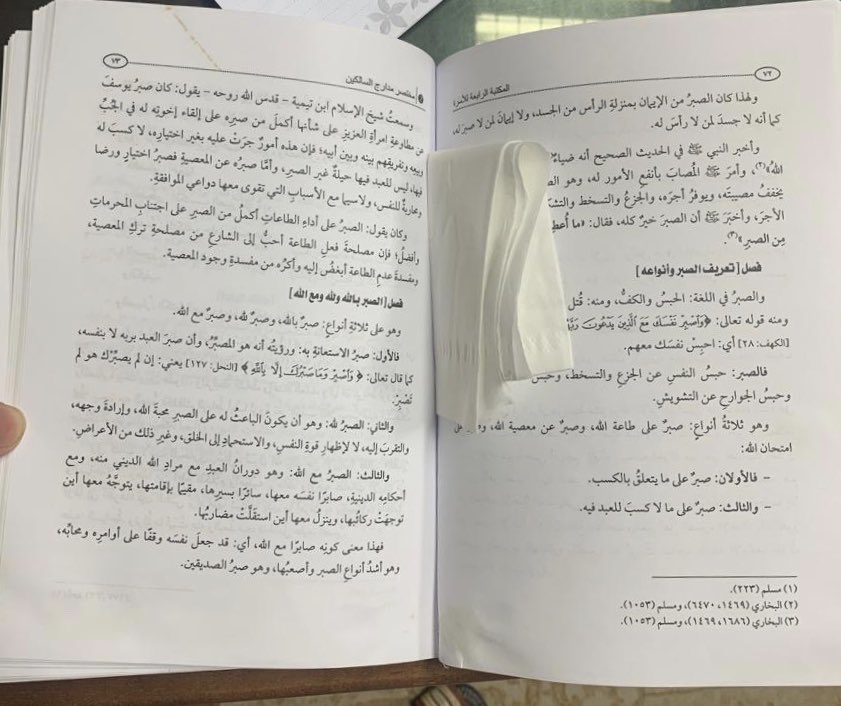 ٧٢
المكتبة الرابعة للأسرة
ولهذا كان الصبرُ من الإيمان بمنزلةِ الرأس من الجسد، ولا إيمانَ لمن لا صبرَ له،
كما أنه لا جسدَ لمن لا رأسَ له.
وأخبر النبي ﷺ في الحديث الصحيح أنه ضياءٌ
اللهُ»(٢)، وأمرَ ﷺ المُصابَ بأنفع الأمور له، وهو
يخففُ مصيبتَه، ويوفرُ أجرَه، والجزعُ والتسخط
الأجرَ، وأخبَرَ ﷺ أن الصبرَ خيرٌ كله، فقال: «ما
مِن الصبرِ»(٣).
فصل [تعريف الصبر وأنواعه]
والصبرُ في اللغة: الحبسُ والكفُّ، ومنه: قُتل
ومنه قوله تعالى: ﴿وَٱصۡبِرۡ نَفۡسَكَ مَعَ ٱلَّذِينَ يَدۡعُونَ
[الكهف: ٢٨] أي: احبِسْ نفسَك معهم.
فالصبر: حبسُ النفسِ عن الجزعِ والتسخط، وحبسُ
وحبسُ الجوارحِ عن التشويشِ.
وهو ثلاثةُ أنواعٍ: صبرٌ على طاعة الله، وصبرٌ عن معصية الله،
امتحان الله:
- فالأولان: صبرٌ على ما يتعلقُ بالكسب.
- والثالث: صبرٌ على ما لا كسبَ للعبد فيه.
(١) مسلم (٢٢٣).
(٢) البخاري (١٤٦٩، ٦٤٧٠)، ومسلم (١٠٥٣).
(٣) البخاري (١٤٦٩، ١٦٨٦)، ومسلم (١٠٥٣).
مختصر مدارج السالكين
٧٣
وسمعتُ شيخَ الإسلام ابن تيمية – قدس الله روحه – يقول: كان صبرُ يوسفَ
عن مطاوعةِ امرأةِ العزيزِ على شأنها أكملَ من صبرِه على إلقاء إخوتِه له في الجُبِّ
وبيعِه وتفريقِهم بينه وبين أبيه؛ فإن هذه أمورٌ جرَتْ عليه بغير اختيارِه، لا كسبَ له
فيها، ليس للعبد فيها حيلةٌ غير الصبرِ، وأمَّا صبرُه عن المعصيةِ فصبرُ اختيارٍ ورضا
ومحاربةٌ للنفس، ولاسيما مع الأسبابِ التي تقوى معها دواعي الموافقةِ.
وكان يقول: الصبرُ على أداءِ الطاعاتِ أكملُ من الصبرِ على اجتنابِ المحرماتِ
وأفضلُ؛ فإن مصلحةَ فعلِ الطاعة أحبُّ إلى الشارعِ من مصلحةِ تركِ المعصية،
ومفسدةَ عدمِ الطاعة أبغضُ إليه وأكرَه من مفسدةِ وجود المعصية.
فصل [الصبر بالله ولله ومع الله]
وهو على ثلاثةِ أنواعٍ: صبرٌ بالله، وصبرٌ لله، وصبرٌ مع الله.
فالأول: صبرُ الاستعانةِ به: ورؤيتُه أنه هو المصبِّرُ، وأن صبرَ العبد بربه لا بنفسه،
كما قال تعالى: ﴿وَٱصۡبِرۡ وَمَا صَبۡرُكَ إِلَّا بِٱللَّهِ﴾ [النحل: ١٢٧] يعني: إن لم يصبِّرْك هو لم
تَصْبِرْ.
والثاني: الصبرُ لله: وهو أن يكونَ الباعثُ له على الصبرِ محبةَ الله، وإرادةَ وجهِه،
والتقربَ إليه، لا لإظهارِ قوةِ النفسِ، والاستحمادِ إلى الخلق، وغيرِ ذلك من الأعراضِ.
والثالث: الصبرُ مع الله: وهو دورانُ العبدِ مع مرادِ الله الديني منه، ومع
أحكامِه الدينيةِ، صابرًا نفسَه معها، سائرًا بسيرِها، مقيمًا بإقامتها، يتوجَّهُ معها أين
توجهَتْ ركائبُها، وينزلُ معها أين استقلَّتْ مضاربُها.
فهذا معنى كونِه صابرا مع الله، أي: قد جعلَ نفسَه وقفًا على أوامرِه ومحابِّه،
وهو أشدُّ أنواعِ الصبر وأصعبُها، وهو صبرُ الصديقين.